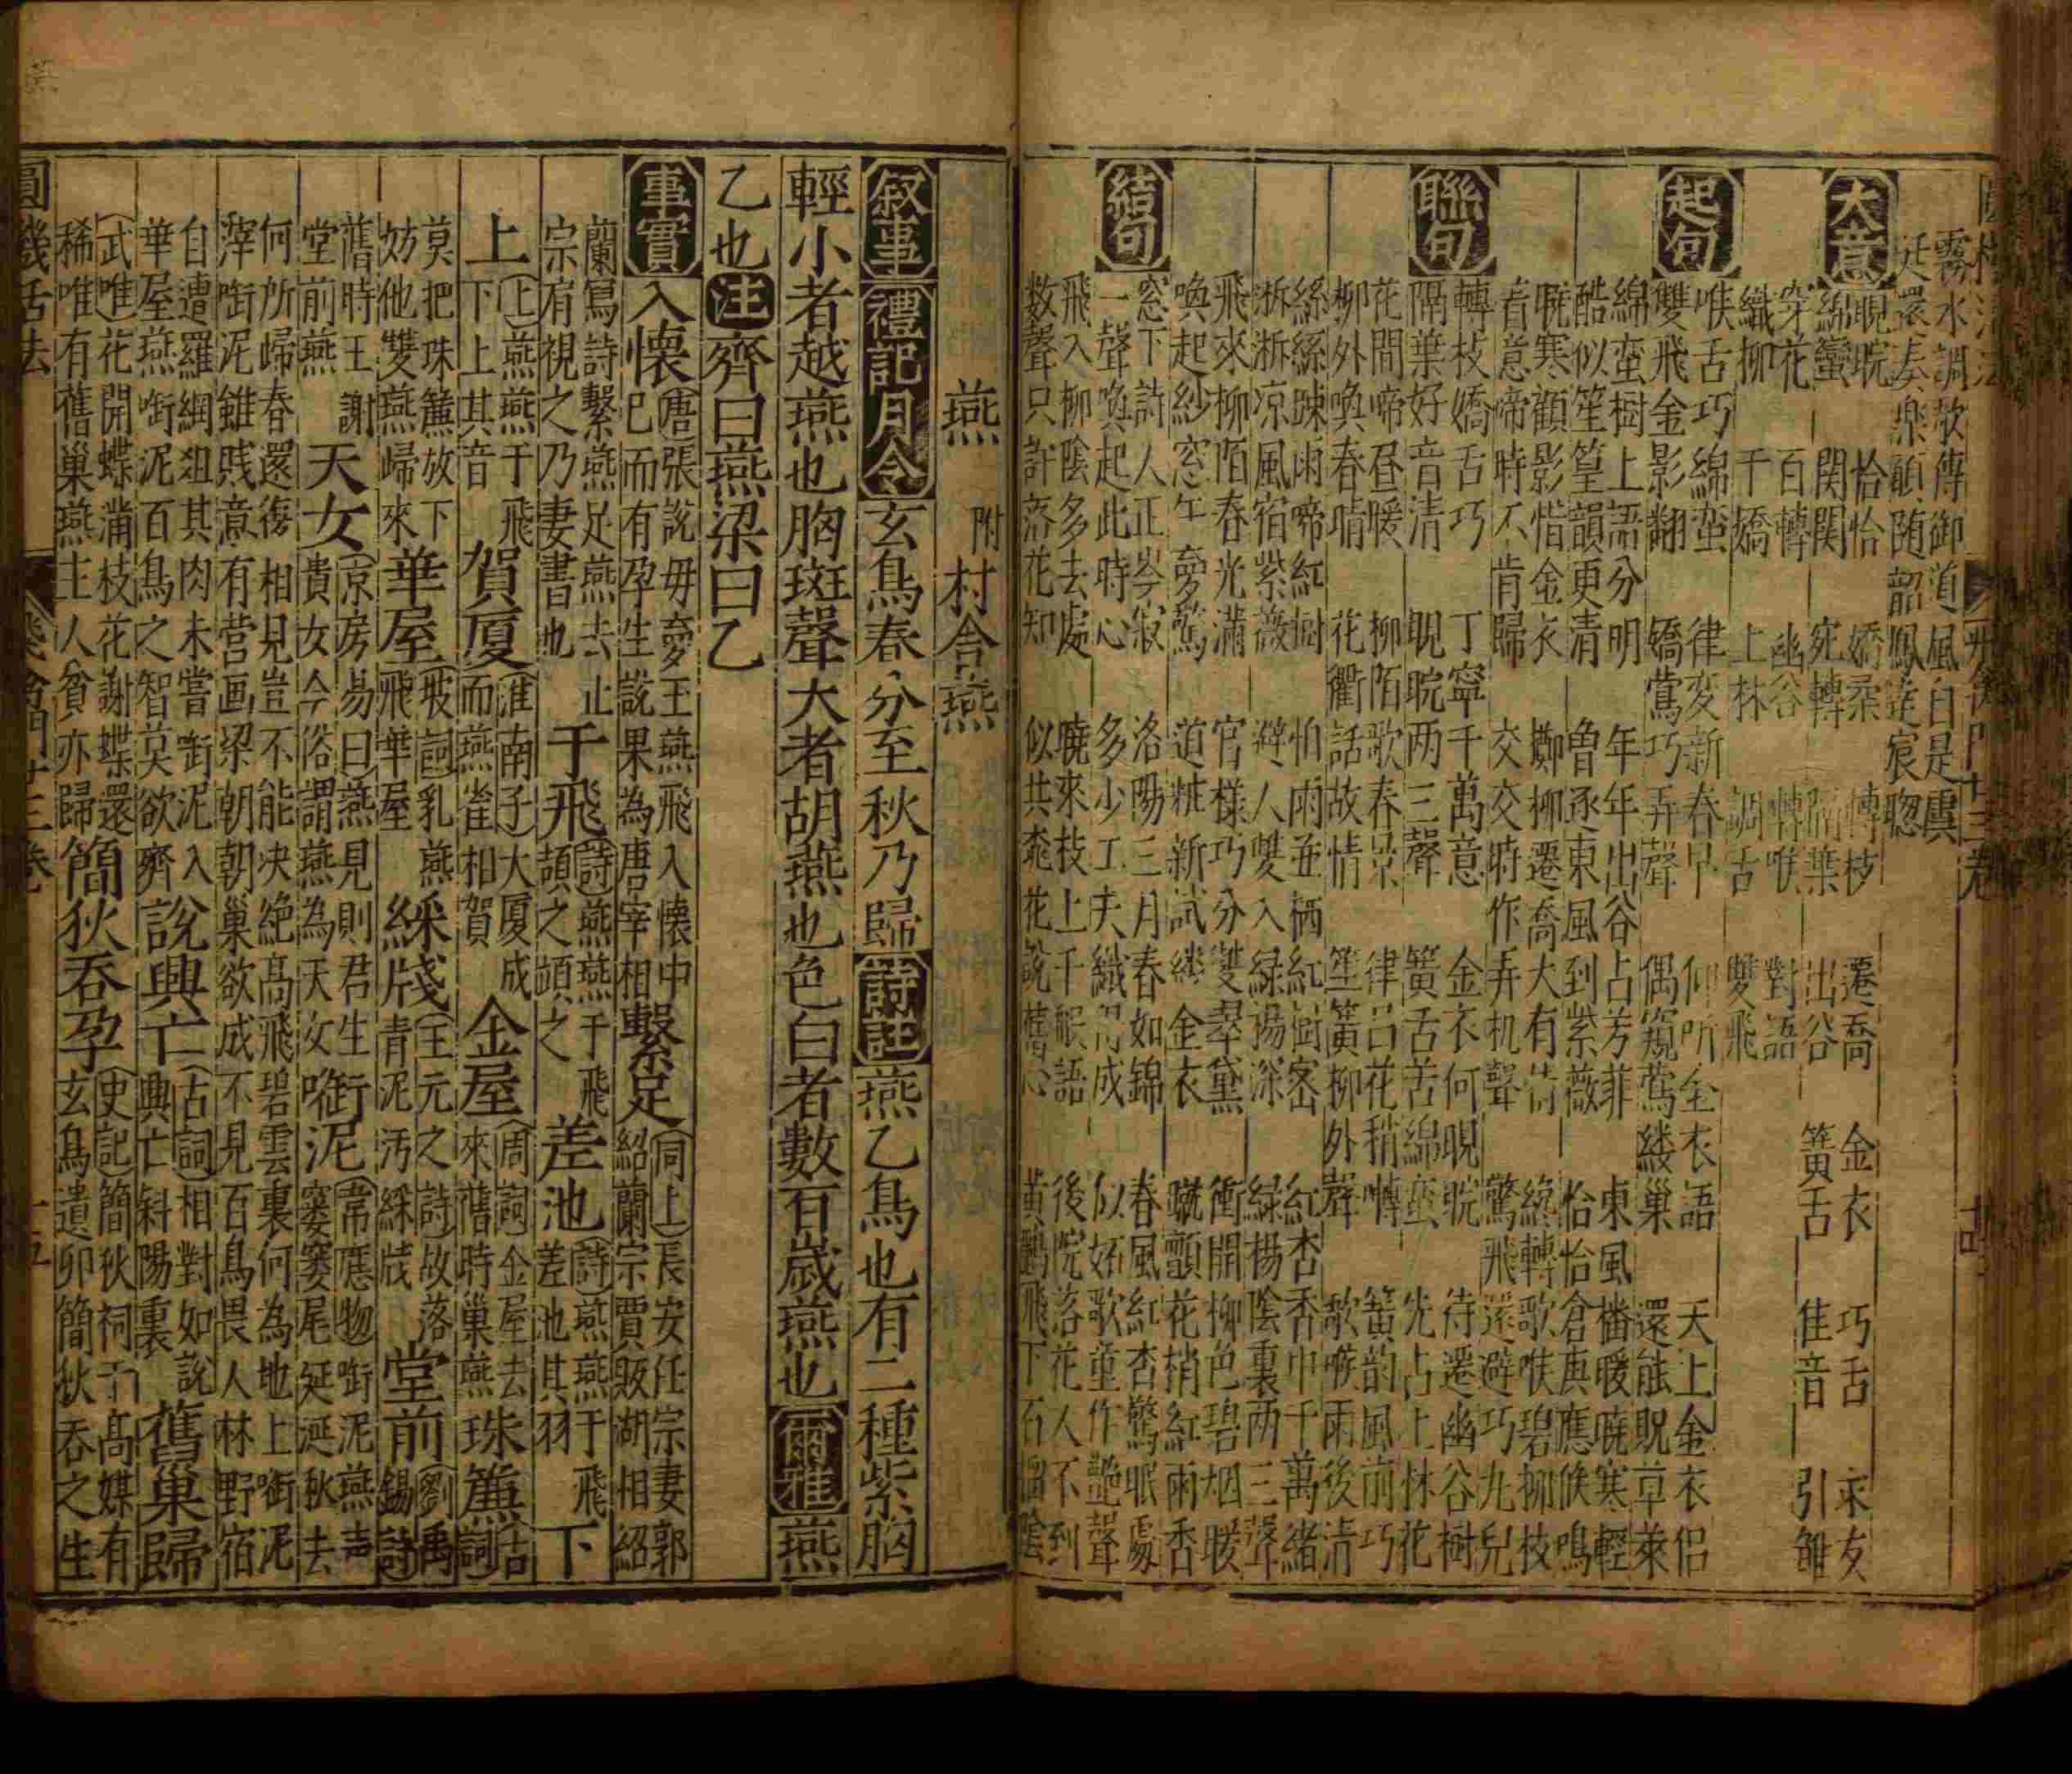 霧水調歌傳御道風白是虞
廷還奏樂顛随韶鳳達宸聰
大意
睍睆 恰恰 嬌柔 轉枝 遷喬 金衣 巧舌 求友
綿蠻 関関 宛轉 隔葉 出谷 簧舌 佳音 引雛
穿花 百轉 幽谷 囀喉 對語
織柳 千嬌 上林 調古 雙飛
起句
喉舌巧綿蛮 律変新春早 仰听金衣語 天上金衣侣
雙飛金影翻 嬌鶯巧弄聲 偶窺鶯縷巢 還能貺草萊
綿蛮樹上語分明 年年出谷占芳菲 東風播暖曉寒輕
酷似笙篁韻更清 曾逐東風到紫薇 恰恰倉庚應候鳴
曉寒顧影惜金衣 擲柳遷喬大有情 緩轉歌喉碧柳枝
着意啼時不肯歸 交交時作弄机聲 驚飛還避巧九兒
聯句
轉枝嬌舌巧 丁寧千萬意 金衣何睍睆 待遷幽谷樹
隔葉好音清 睍睆两三聲 簧舌苦綿蛮 先占上林花
花間啼昼暖 柳陌歌春景 律吕花稍囀 簧韵風前巧
柳外喚春晴 花衢話故情 笙簧柳外聲 歌喉雨後清
絲絲踈雨啼紅樹 怕雨並栖紅樹密 紅杏香中千萬緒
淅淅凉風宿紫薇 避人雙入緑楊深 緑楊陰裏两三聲
飛來柳陌春光滿 官様巧分雙翠黛 衝開柳色碧烟暖
喚起紗窓午夢驚 道粧新試縷金衣 蹴顫花梢紅雨香
結句
窓下詩人正岑寂 洛陽三月春如錦 春風紅杏驚眠處
一聲喚起此時心 多少工夫織得成 似妬歌童作艷聲
飛入柳陰多去處 曉來枝上千般語 後院落花人不到
数聲只許落花知 似共桃花說舊心 黄鸝飛下石榴陰
燕 附 村舍燕
叙事 禮記月令 玄鳥春分至秋乃歸 詩註 燕乙鳥也有二種紫胸
輕小者越燕也胸斑聲大者胡燕也色白者數百歲燕也 爾雅 燕
乙也 注 齊曰燕梁曰乙
事實 入懷
唐張說母夢王燕飛入懷中
巳而有孕生說果為唐宰相
繫足
同上長安任宗妻郭
紹蘭宗賈販湖相紹
蘭寫詩繫燕足燕去止
宗肩視之乃妻書也
于飛
詩燕燕于飛
頡之頏之
差池
詩燕燕于飛
差池其羽
下
上
上燕燕于飛
下上其音
賀廈
淮南子大廈成
而燕雀相賀
金屋
周詞金屋去
來舊時巢燕
珠簾
古
詞
莫把珠簾放下
妨他雙燕歸來
華屋
坡詞乳燕
飛華屋
綵牋
王元之詩故落
青泥汚綵牋
堂前
劉禹
錫詩
舊時王謝
堂前燕
天女
京房易曰燕見則君生
貴女今俗謂燕為天女
啣泥
韋應物啣泥燕声
窶窶尾延涎秋去
何所歸春還復相見豈不能决絶高飛碧雲裏何為地上啣泥
滓啣泥雖賎意有営画梁朝朝巢欲成不見百鳥畏人林野宿
自遭羅網俎其肉未嘗啣泥入
華屋燕啣泥百鳥之智莫欲齊
說興亡
古詞相對如說
興亡斜陽裏
舊巢歸
武唯花開蝶滿枝花謝蝶還
稀唯有舊巢燕主人貧亦歸
簡狄吞孕
史記簡狄祠于高媒有
玄鳥遺卵簡狄吞之生
圓機活法 飛禽門十三卷 十五